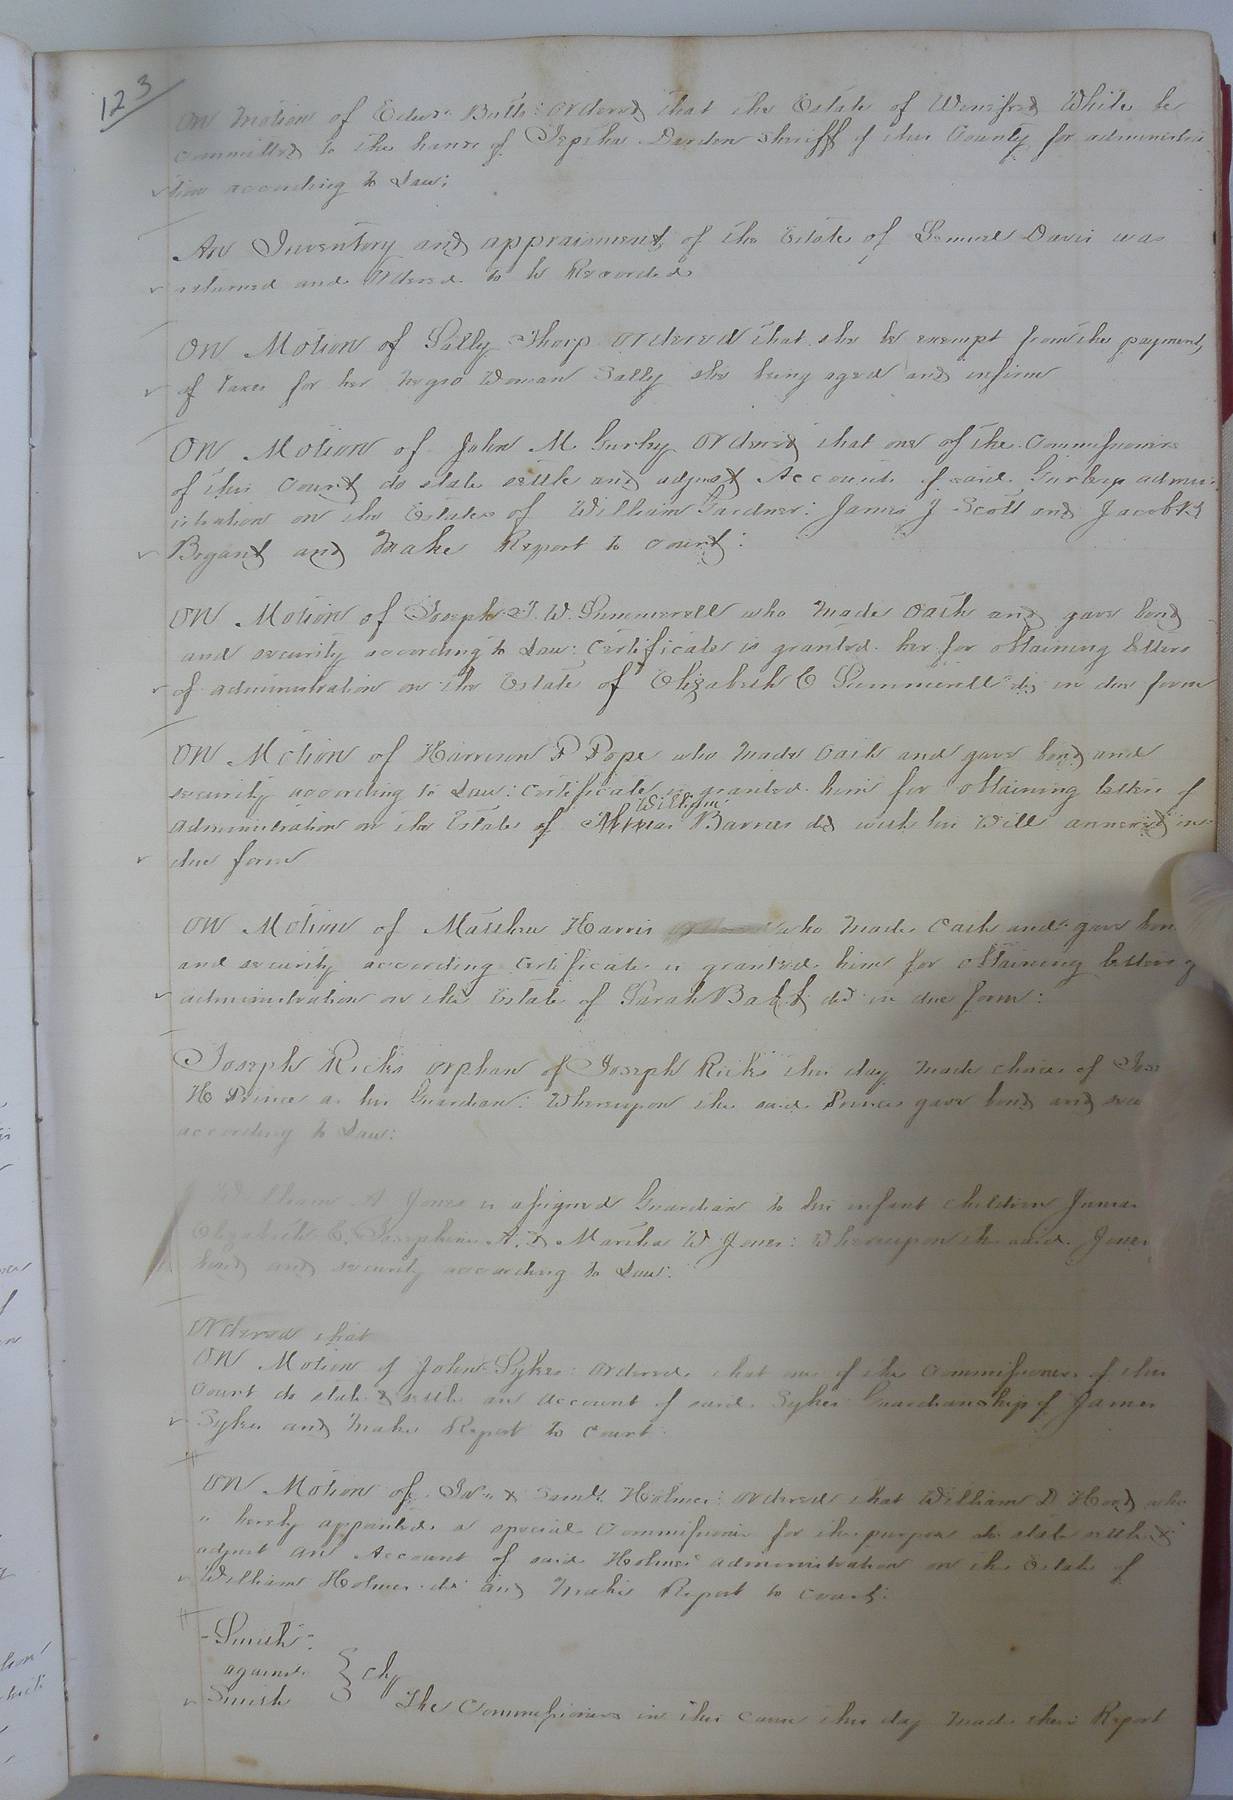 123
On Motion of Edwd. Butts: ordered that the Estate of Winifred White be
committed to the hands of Jeptha Darden Sheriff of this County for administra
tion according to Law:
An Inventory and appraisment of the Estate of Samuel Davis was
returned and Ordered to be Recorded
On Motion of Sally Thorp ordered that she be exempt from the payment
of taxes for her Negro Woman Sally she being aged and infirm
On Motion of John M Gurley Ordered that one of the Commissioners
of this Court do state settle and adjust Account of said Gurleys admin
istration on the Estate of William Gardner: James J Scott and Jacob
Bryant and Make Report to Court:
On Motion of Joseph T. W. Summerell who Made Oath and gave bond
and security according to Law: Certificate is granted her for obtaining letters
of administration on the Estate of Elizabeth C Summerell dd in due form
On Motion of Harrison P Pope who Made Oath and gave bond and
security according to Law: Certificate is granted him for obtaining letters of
William
Administration on the Estate of Barnes dd with his Will annexed in
due form
On Motion of Matthew Harris who Made Oath and gave bon
and security according Certificate is granted him for obtaining letters of
administration on the Estate of Sarah dd in due form:
Joseph Ricks orphan of Joseph Ricks this day Made choice of Jos
H Prince as his Guardian: Whereupon the said Prince gave bond and secu
according to Law:
William A Jones is assigned Guardian to his infant children James
Elizabeth C, Josephine A. & Martha W Jones: Whereupon the said Jones
bond and security according to Law:
Ordered that
On Motion of John Sykes: ordered that one of the Commissioners of this
Court do state & settle an Account of said Sykes Guardianship of James
Sykes and Make Report to Court
On Motion of & Saml. Holmes: ordered that William D Hood who
is hereby appointed a special Commissioner for the purpose do state settle &
adjust an Account of said Holmes administration on the Estate of
William Holmes dd and Make Report to Court:
Smith
against } Chy
Smith
The Commissioners in this cause this day Made their Report